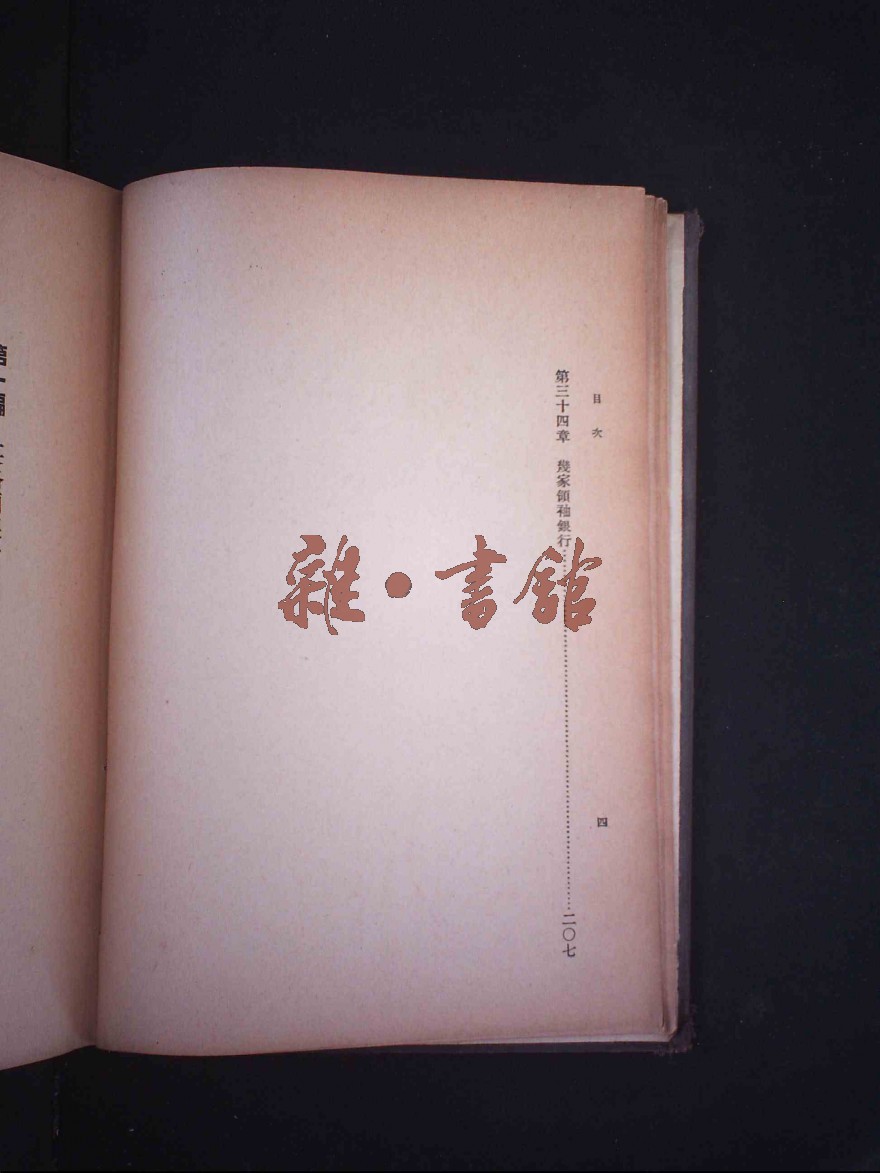 目次
四
第三十四章 幾家領袖銀行……二〇七
雜·書館
第一編